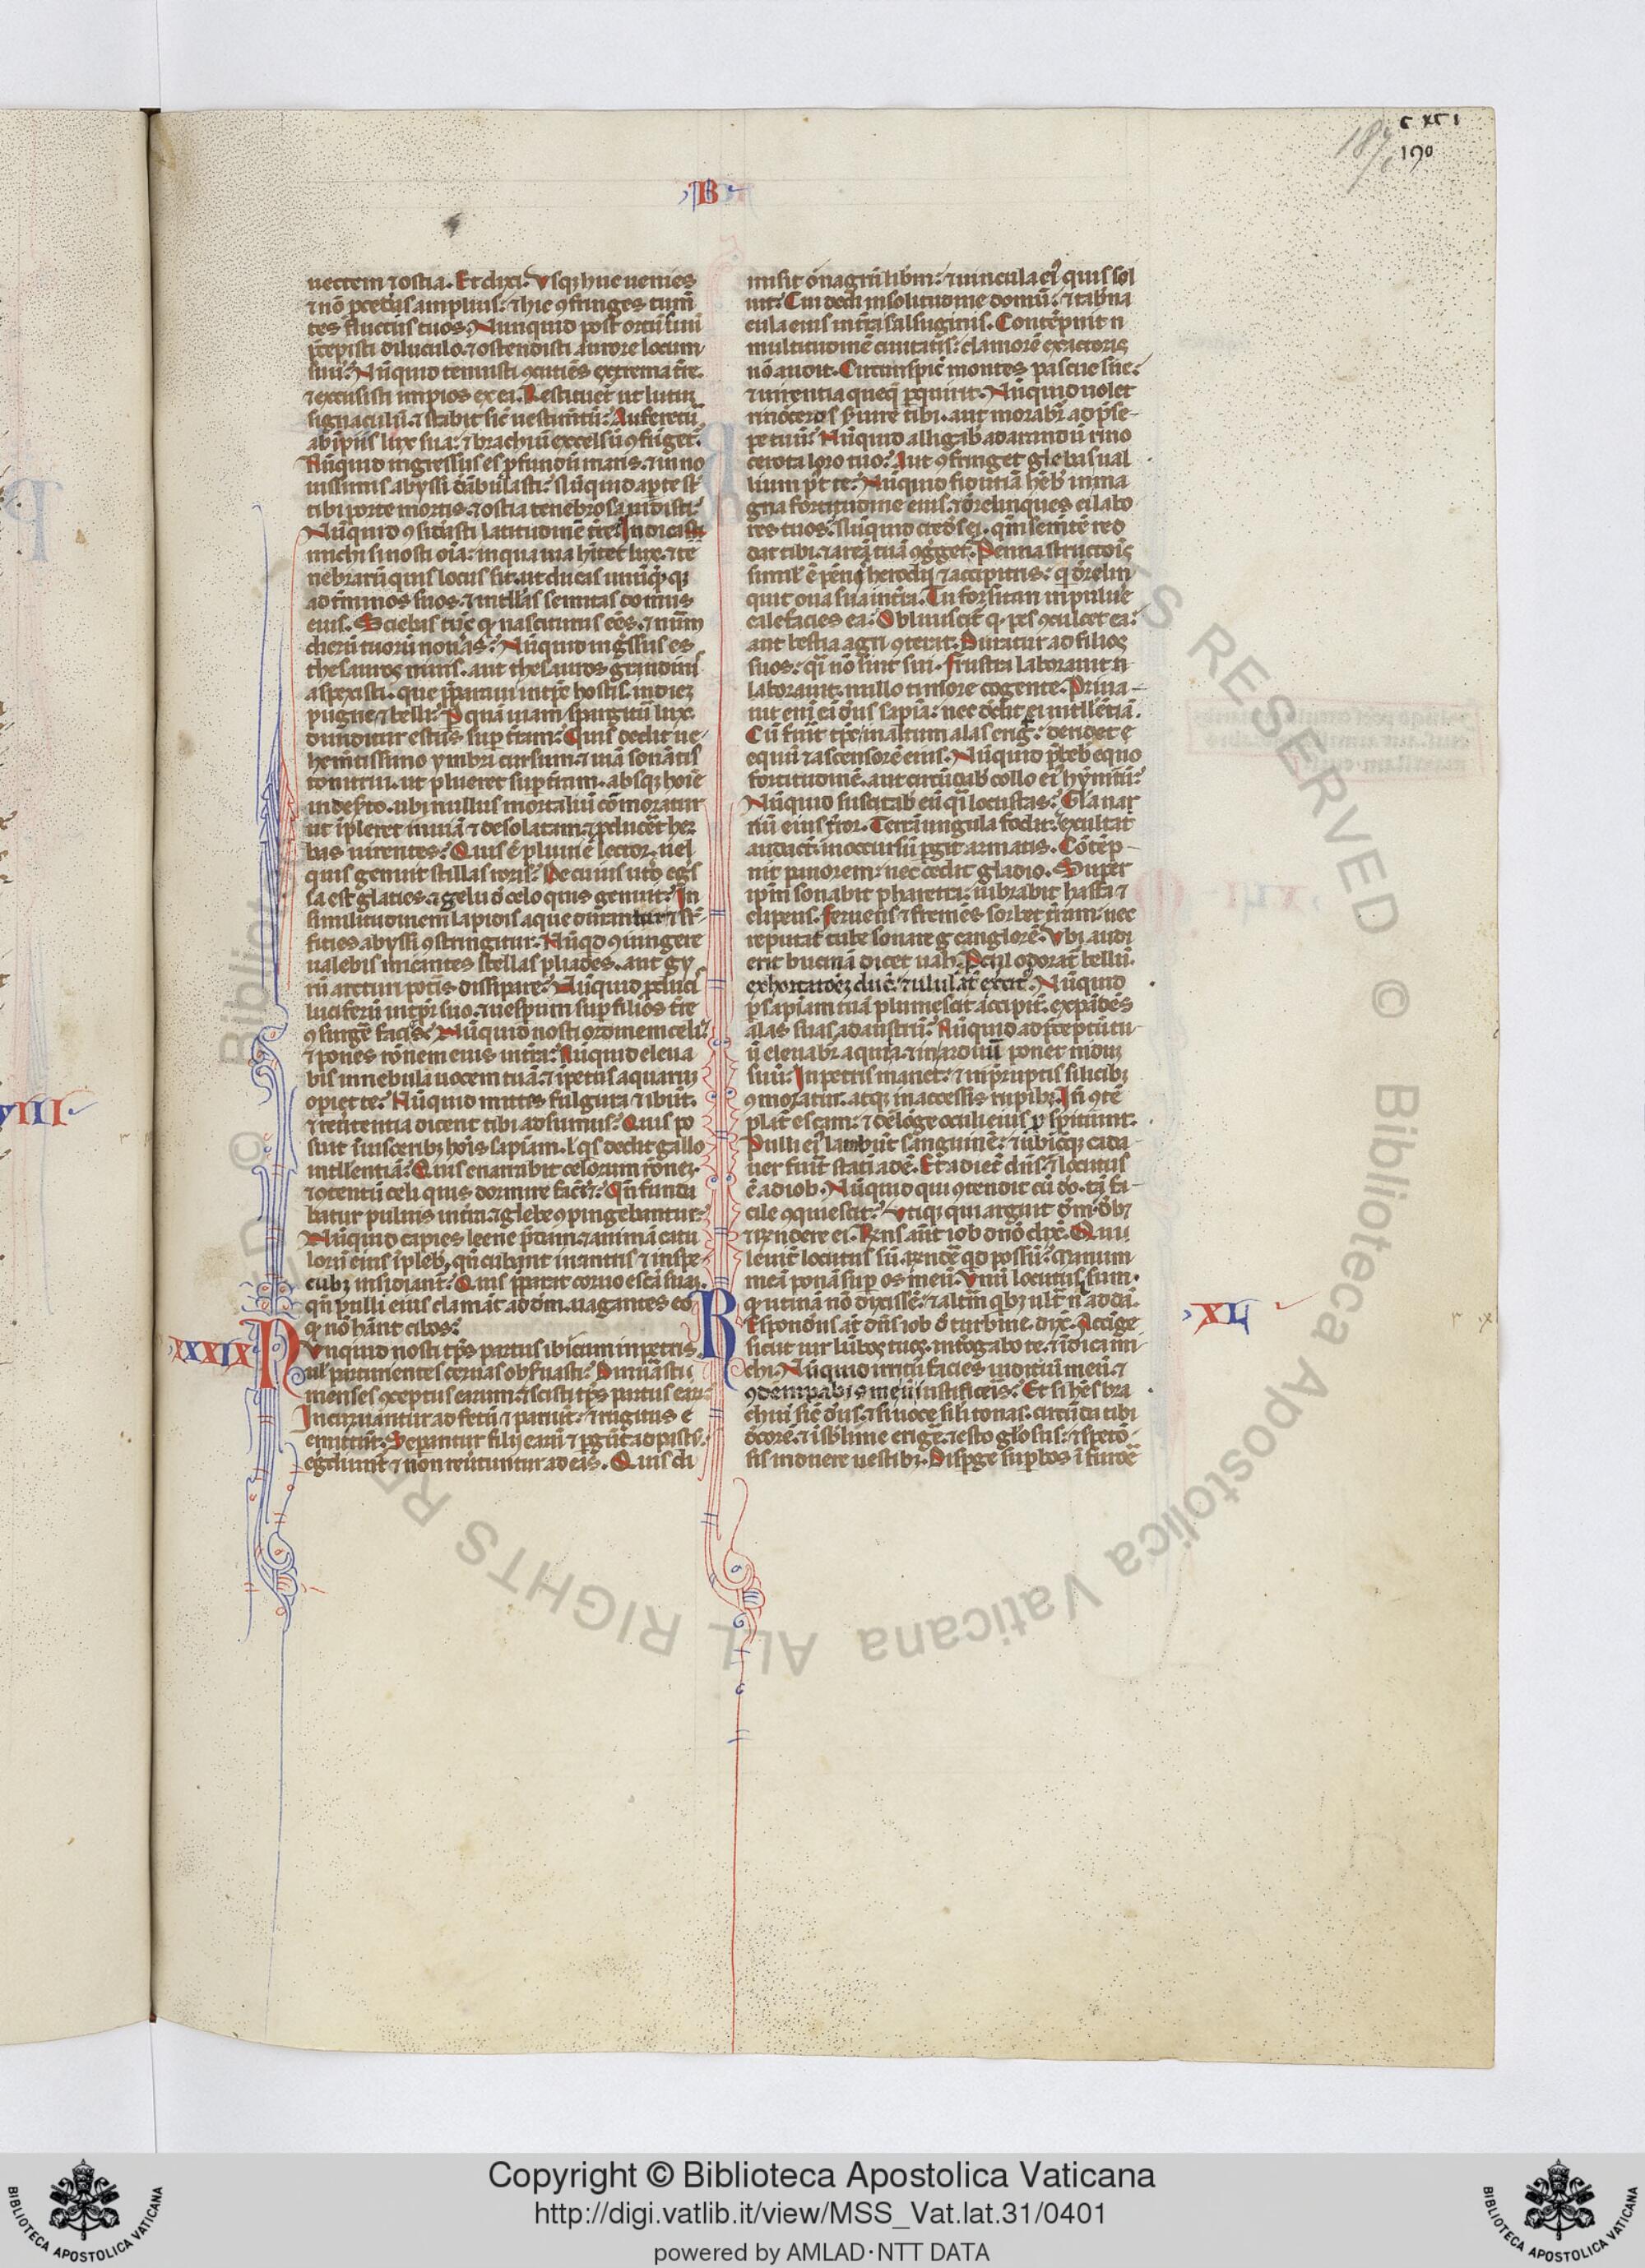 C XCI
190
B
uectem ⁊ ostia. Et dixi. Vsqꝫ huc uenies
⁊ nō p̄cedas amplius: ⁊ hic ꝯfringes tum̄
tes fluctus tuos. Nunquid post ortū tuū
p̄cepisti diluculo. ⁊ ostendisti aurore locum
suū? Nūquid tenuisti ꝯcutiēs extrema t̄re.
⁊ excussisti impios ex ea. Restituet̄ ut lutuꝫ
signaculū. ⁊ stabit sic̄ uestim̄tū: Auferetur
ab īpiis lux sua: ⁊ brachiū excelsū ꝯfriget̄.
Nūquid ingressus es ꝓfundū maris. ⁊ in no
uissimis abyssi dābulasti? Nūquid ap̄te st̄
tibi porte mortis. ⁊ ostia tenebrosa uidisti?
Nūquid ꝯsid̄asti latitudinē t̄re? Indica
michi si nosti oīa: in qua uia hītet lux. ⁊ te
nebrarū quis locus sit. ut ducas unūqd̄qꝫ
ad t̄minos suos. ⁊ intll̄as semitas domus
eius. Sciebas tūc ꝙ nasciturus eēs. ⁊ num̄
dierū tuorū nou̓as? Nūquid ingr̄ssus es
thesauros niuis. aut thesauros grandinis
aspexisti. que p̄paraui in tp̄e hostis. in dieꝫ
pugne ⁊ belli? P quā uiam spargitur lux.
diuiditur estus suꝑ t̄ram? Quis dedit ue-
hem̄tissimo ymbri cursum. ⁊ uiā sonātis
tonitrui. ut plueret suꝑ t̄ram. absqꝫ hoīe
in des̓to. ubi nullus mortaliū cōmoratur
ut īpleret inuiā ⁊ desolatam. ⁊ ꝓduc̄et her
bas uirentes? Quis ē pluuie lector. uel
quis genuit stillas roris? De cuius ut̓o eg̓s
sa est glacies. ⁊ gelu d̓ celo quis genuit? In
similitudinem lapidis aque durantur. ⁊ su̓-
ficies abyssi ꝯstringitur. Nūqd̓ ꝯiungere
ualebis micantes stellas pliades. aut gy
rū arcturi pot̓is dissipare? Nūquid ꝓducis
luciferū in tp̄r suo. ⁊ uesp̄um suꝑ filios t̄re
ꝯsurge̓ facis? Nūquid nosti ordinem celi?
⁊ pones rōnem eius in t̄ra? Nūquid eleua
bis in nebula uocem tuā. ⁊ īpetus aquaruꝫ
opiet te? Nūquid mittes fulgura ⁊ ibūt.
⁊ reu̓tentia dicent tibi adsumus? Quis po
suit ī uisceribꝫ hoīs sapiam. l̓ q̓s dedit gallo
intll̄entiā? Quis enarrabit celorum rōneꝫ.
⁊ ꝯcentū celi quis dormire faciet? Qn̄ funda
batur puluis in t̄ra. ⁊ glebe ꝯpingebantur?
Nūquid capies leene p̄dam. ⁊ animā catu
lorū eius īpleb̓. qn̄ cubant in antris ⁊ in spe-
cubꝫ insidiant̓? Quis p̄parat coruo escā suaꝫ.
qn̄ pulli eius clamāt ad dm̄. uagantes eo
ꝙ nō hānt cibos?
XXXIX
Nvnquid nosti tp̄s partus ibicum in petris.
ul̓ parturientes ceruas obs̓uasti? Dinūasti
menses ꝯceptus earum. ⁊ scisti tp̄s partus earū
Incuruantur ad fetū ⁊ pariūt. ⁊ rugitus e
emittūt. Sepantur filij earū ⁊ pgūt ad past̄.
egrediunt̓ ⁊ non reu̓tuntur ad eas. Quis di
misit onagrū lib̄m: ⁊ uincula eiꝰ quis sol
uit? Cui dedi in solitudine domū. ⁊ tab̄na
cula eius in t̄ra salsuginis. Contēpnit n̄
multitudinē ciuitatis: clamorē exactoris
nō audit. Circūspic̄ montes pascue sue:
⁊ uirentia queqꝫ ꝑquirit. Nūquid uolet
rinoceros s̓uire tibi. aut morabr̄ ad p̄se-
pe tuū? Nūquid alligab̓ ad arandū rino
cerota loro tuo? Aut ꝯfringet glebas ual
lium pꝰt te? Nūquid fiduciā hēb̓ in ma
gna fortitudine eius. ⁊ d̓relinques ei labo
res tuos? Nūquid credes ei. qm̄ sem̄tē red
dat tibi. ⁊ areā tuā ꝯgget? Penna structōis
similꝰ ē pēnis herodij ⁊ accipitris: q̄ d̓relin
quit oua sua in t̄ra. Tu forsitan in puluē
calefacies ea? Obliuiscit̓ ꝙ pes ꝯculcet ea:
aut bestia agri ꝯterat. Duratur ad filios
suos: q̄si nō sint sui. frustra laborauit n̄
laborauit. nullo timore cogente. Priua-
uit enī eā dn̄s sapia: nec dedit ei intll̄entiā.
Cū fuit tp̄s in altum alas erig̓: deridet
equū ⁊ ascensorē eius. Nūquid p̄beb equo
fortitudinē. aut circūdab̓ collo eiꝰ hynnitū?
Nūquid suscitab̓ eū q̄si locustas? Gl̓a nar
riū eius t̄ror. Terrā ungula fodit: exultat
audact̓: in occursū pgit armatis. Cōtēp-
nit pauorem: nec cedit gladio. Super
ipm̄ sonabit pharetra: uibrabit hasta ⁊
clipeus. feruens ⁊ fremēs sorbet t̄ram: nec
reputat tube sonare clangorē. Vbi audi
erit bucinā dicet uah. Pcul odorat̓ bellū.
exhortatōeꝫ ducū: ⁊ ululatū exercit̓. Nūquid
p sapiam tuā plumescit accipit̓. expādēs
alas suas ad austrū? Nūquid ad p̄ceptū tu-
ū eleuabr̄ aquila: ⁊ in arduis ponet nidum
suū? In petris manet: ⁊ in p̄ruptis silicibꝫ
ꝯmoratur. atqꝫ inaccessis rupibꝫ. Inde ꝯtē
plat̓ escam: ⁊ d̓ lōge oculi eius ꝓspiciunt.
Pulli eiꝰ lambūt sanguinē: ⁊ ubicūqꝫ cada-
uer fuit̓ stati adē. Et adiec̄ dn̄s: ⁊ locutus
ē ad iob. Nūquid qui ꝯtendit cū dō. tā fa-
cile ꝯquiescit? Vtiqꝫ qui arguit dm̄. dēbꝫ
⁊ rn̄dere ei. Rn̄s aūt iob dn̄o dixit. Qui
leuit̓ locutus sū. rn̄dē qd̓ possū? Manum
meā ponā suꝑ os meū. Vnū locutus sum.
ꝙ utinā nō dixissē: ⁊ altm̄ qbꝫ ult̓ n̄ addā.
XL
REspondens at̄ dn̄s iob d̓ turbine. dix̄. Accinge
sicut uir lūbos tuos. int̓rogabo te. ⁊ īdica mi
chi. Nūquid irritū facies iudiciū meū. ⁊
ꝯdempnabis me ut iustificeris? Et si hēs bra
chiū sic̄ dn̄s. ⁊ si uoce sili tonas. circūda tibi
decorē. ⁊ ī sublime erige. ⁊ esto glo̓sus: ⁊ speto-
sis induere uestibꝫ. Dispge supbos ī furore